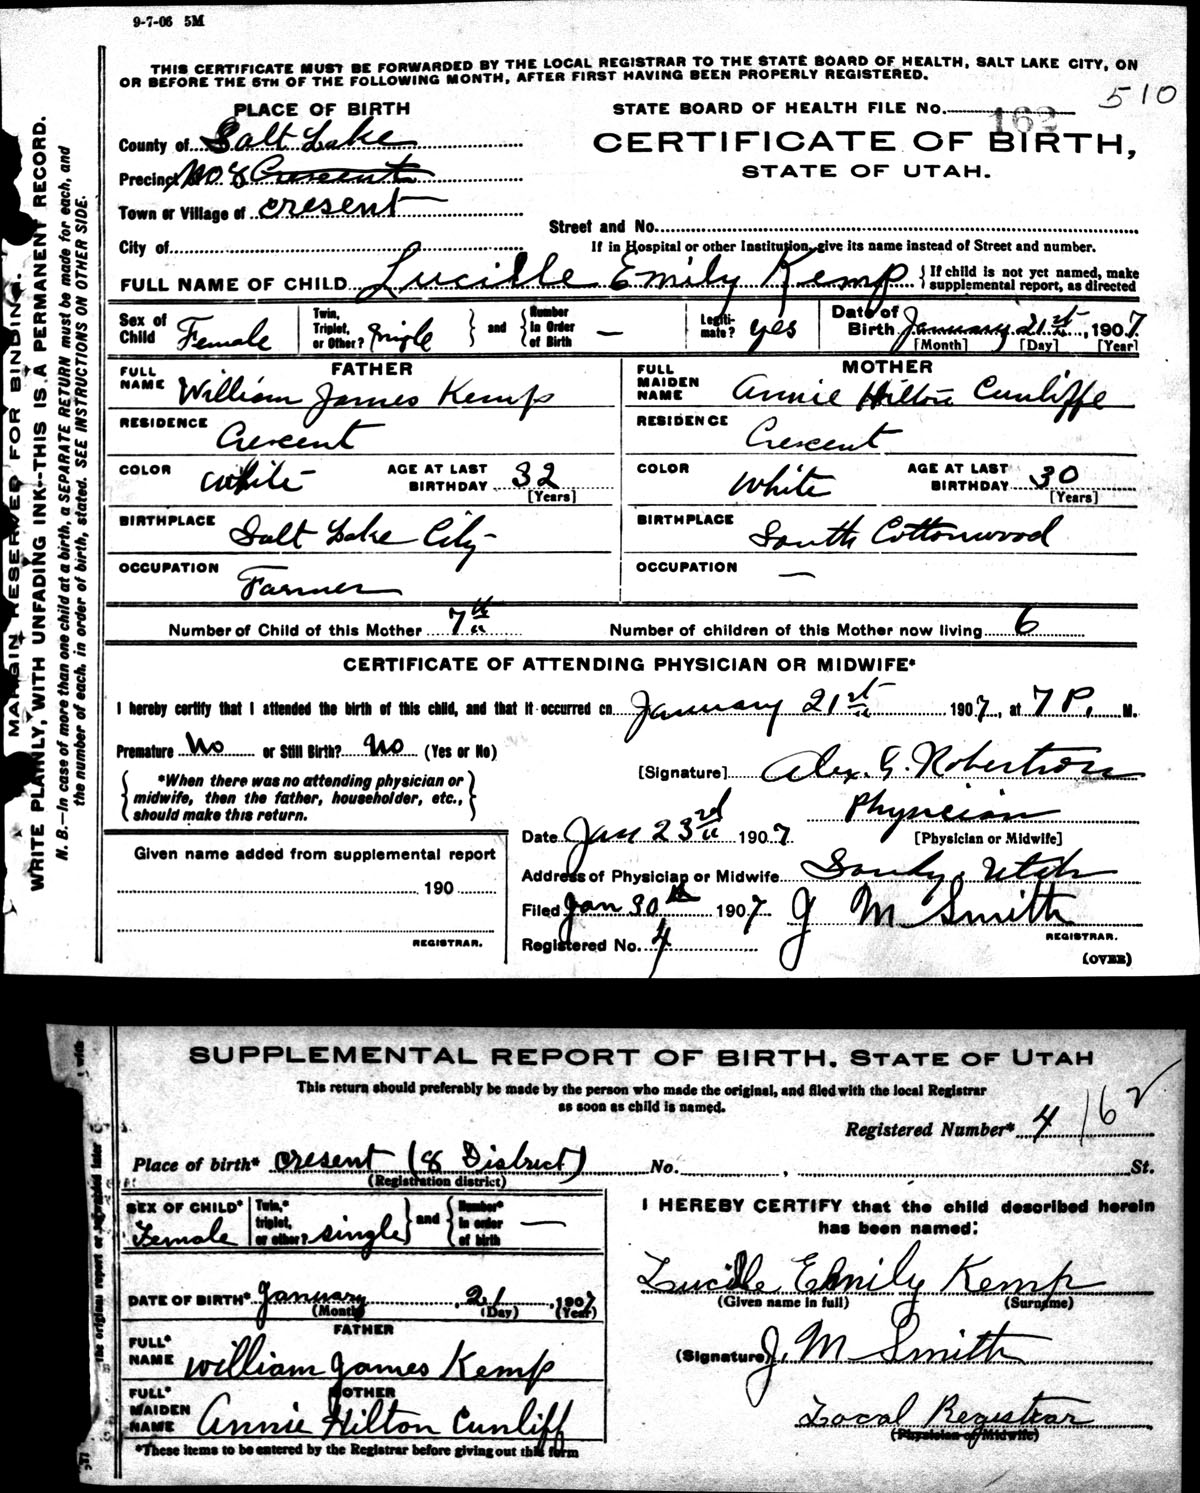 9-7-06 5M
THIS CERTIFICATE MUST BE FORWARDED BY THE LOCAL REGISTRAR TO THE STATE BOARD OF HEALTH, SALT LAKE CITY, ON
OR BEFORE THE 5TH OF THE FOLLOWING MONTH, AFTER FIRST HAVING BEEN PROPERLY REGISTERED.
510
MARGIN RESERVED FOR BINDING.
WRITE PLAINLY, WITH UNFADING INK--THIS IS A PERMANENT RECORD.
N. B.—In case of more than one child at a birth, a SEPARATE RETURN must be made for each, and
the number of each, in order of birth, stated. SEE INSTRUCTIONS ON OTHER SIDE.
PLACE OF BIRTH
County of Salt Lake
Precinct No 8 Crescent
Town or Village of Cresent
City of
STATE BOARD OF HEALTH FILE No. 162
CERTIFICATE OF BIRTH,
STATE OF UTAH.
Street and No.
If in Hospital or other Institution, give its name instead of Street and number.
FULL NAME OF CHILD Lucille Emily Kemp { If child is not yet named, make
supplemental report, as directed
Sex of Child Female
Twin, Triplet, or Other? single } and { Number In Order of Birth —
Legitimate? yes
Date of Birth January 21st, 1907
[Month] [Day] [Year]
FATHER
FULL NAME William James Kemp
RESIDENCE Crescent
COLOR White AGE AT LAST BIRTHDAY 32 [Years]
BIRTHPLACE Salt Lake City
OCCUPATION Farmer
MOTHER
FULL MAIDEN NAME Annie Hilton Cunliffe
RESIDENCE Crescent
COLOR White AGE AT LAST BIRTHDAY 30 [Years]
BIRTHPLACE South Cottonwood
OCCUPATION —
Number of Child of this Mother 7th Number of children of this Mother now living 6
CERTIFICATE OF ATTENDING PHYSICIAN OR MIDWIFE*
I hereby certify that I attended the birth of this child, and that it occurred on January 21st 1907, at 7 P. M.
Premature No or Still Birth? No (Yes or No)
{ *When there was no attending physician or
midwife, then the father, householder, etc.,
should make this return. }
[Signature] Alex. G. Robertson
Physician
[Physician or Midwife]
Date Jan 23rd 1907.
Address of Physician or Midwife Sandy, Utah
Filed Jan 30th 1907 J M Smith
REGISTRAR.
Registered No. 4
(OVER)
Given name added from supplemental report
190
REGISTRAR.
SUPPLEMENTAL REPORT OF BIRTH. STATE OF UTAH
This return should preferably be made by the person who made the original, and filed with the local Registrar
as soon as child is named.
Registered Number* 4 162
Place of birth* Cresent (8 District) No. , St.
(Registration district)
SEX OF CHILD* Female
Twin,* triplet, or other? single } and { Number* in order of birth —
DATE OF BIRTH* January 21, 1907
(Month) (Day) (Year)
FATHER
FULL* NAME William James Kemp
MOTHER
FULL* MAIDEN NAME Annie Hilton Cunliff
*These items to be entered by the Registrar before giving out this form
I HEREBY CERTIFY that the child described herein
has been named:
Lucille Emily Kemp
(Given name in full) (Surname)
(Signature) J. M Smith
Local Registrar
(Physician or Midwife)